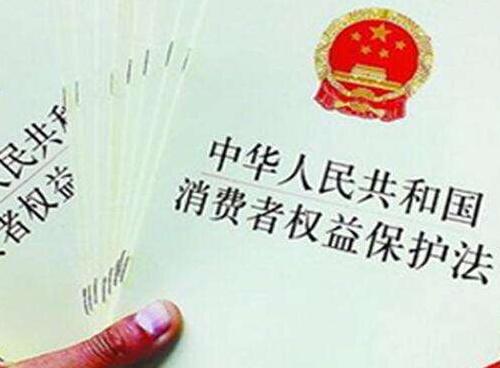 中华人民共和国
消费者权益保护法
人民共和
者权益